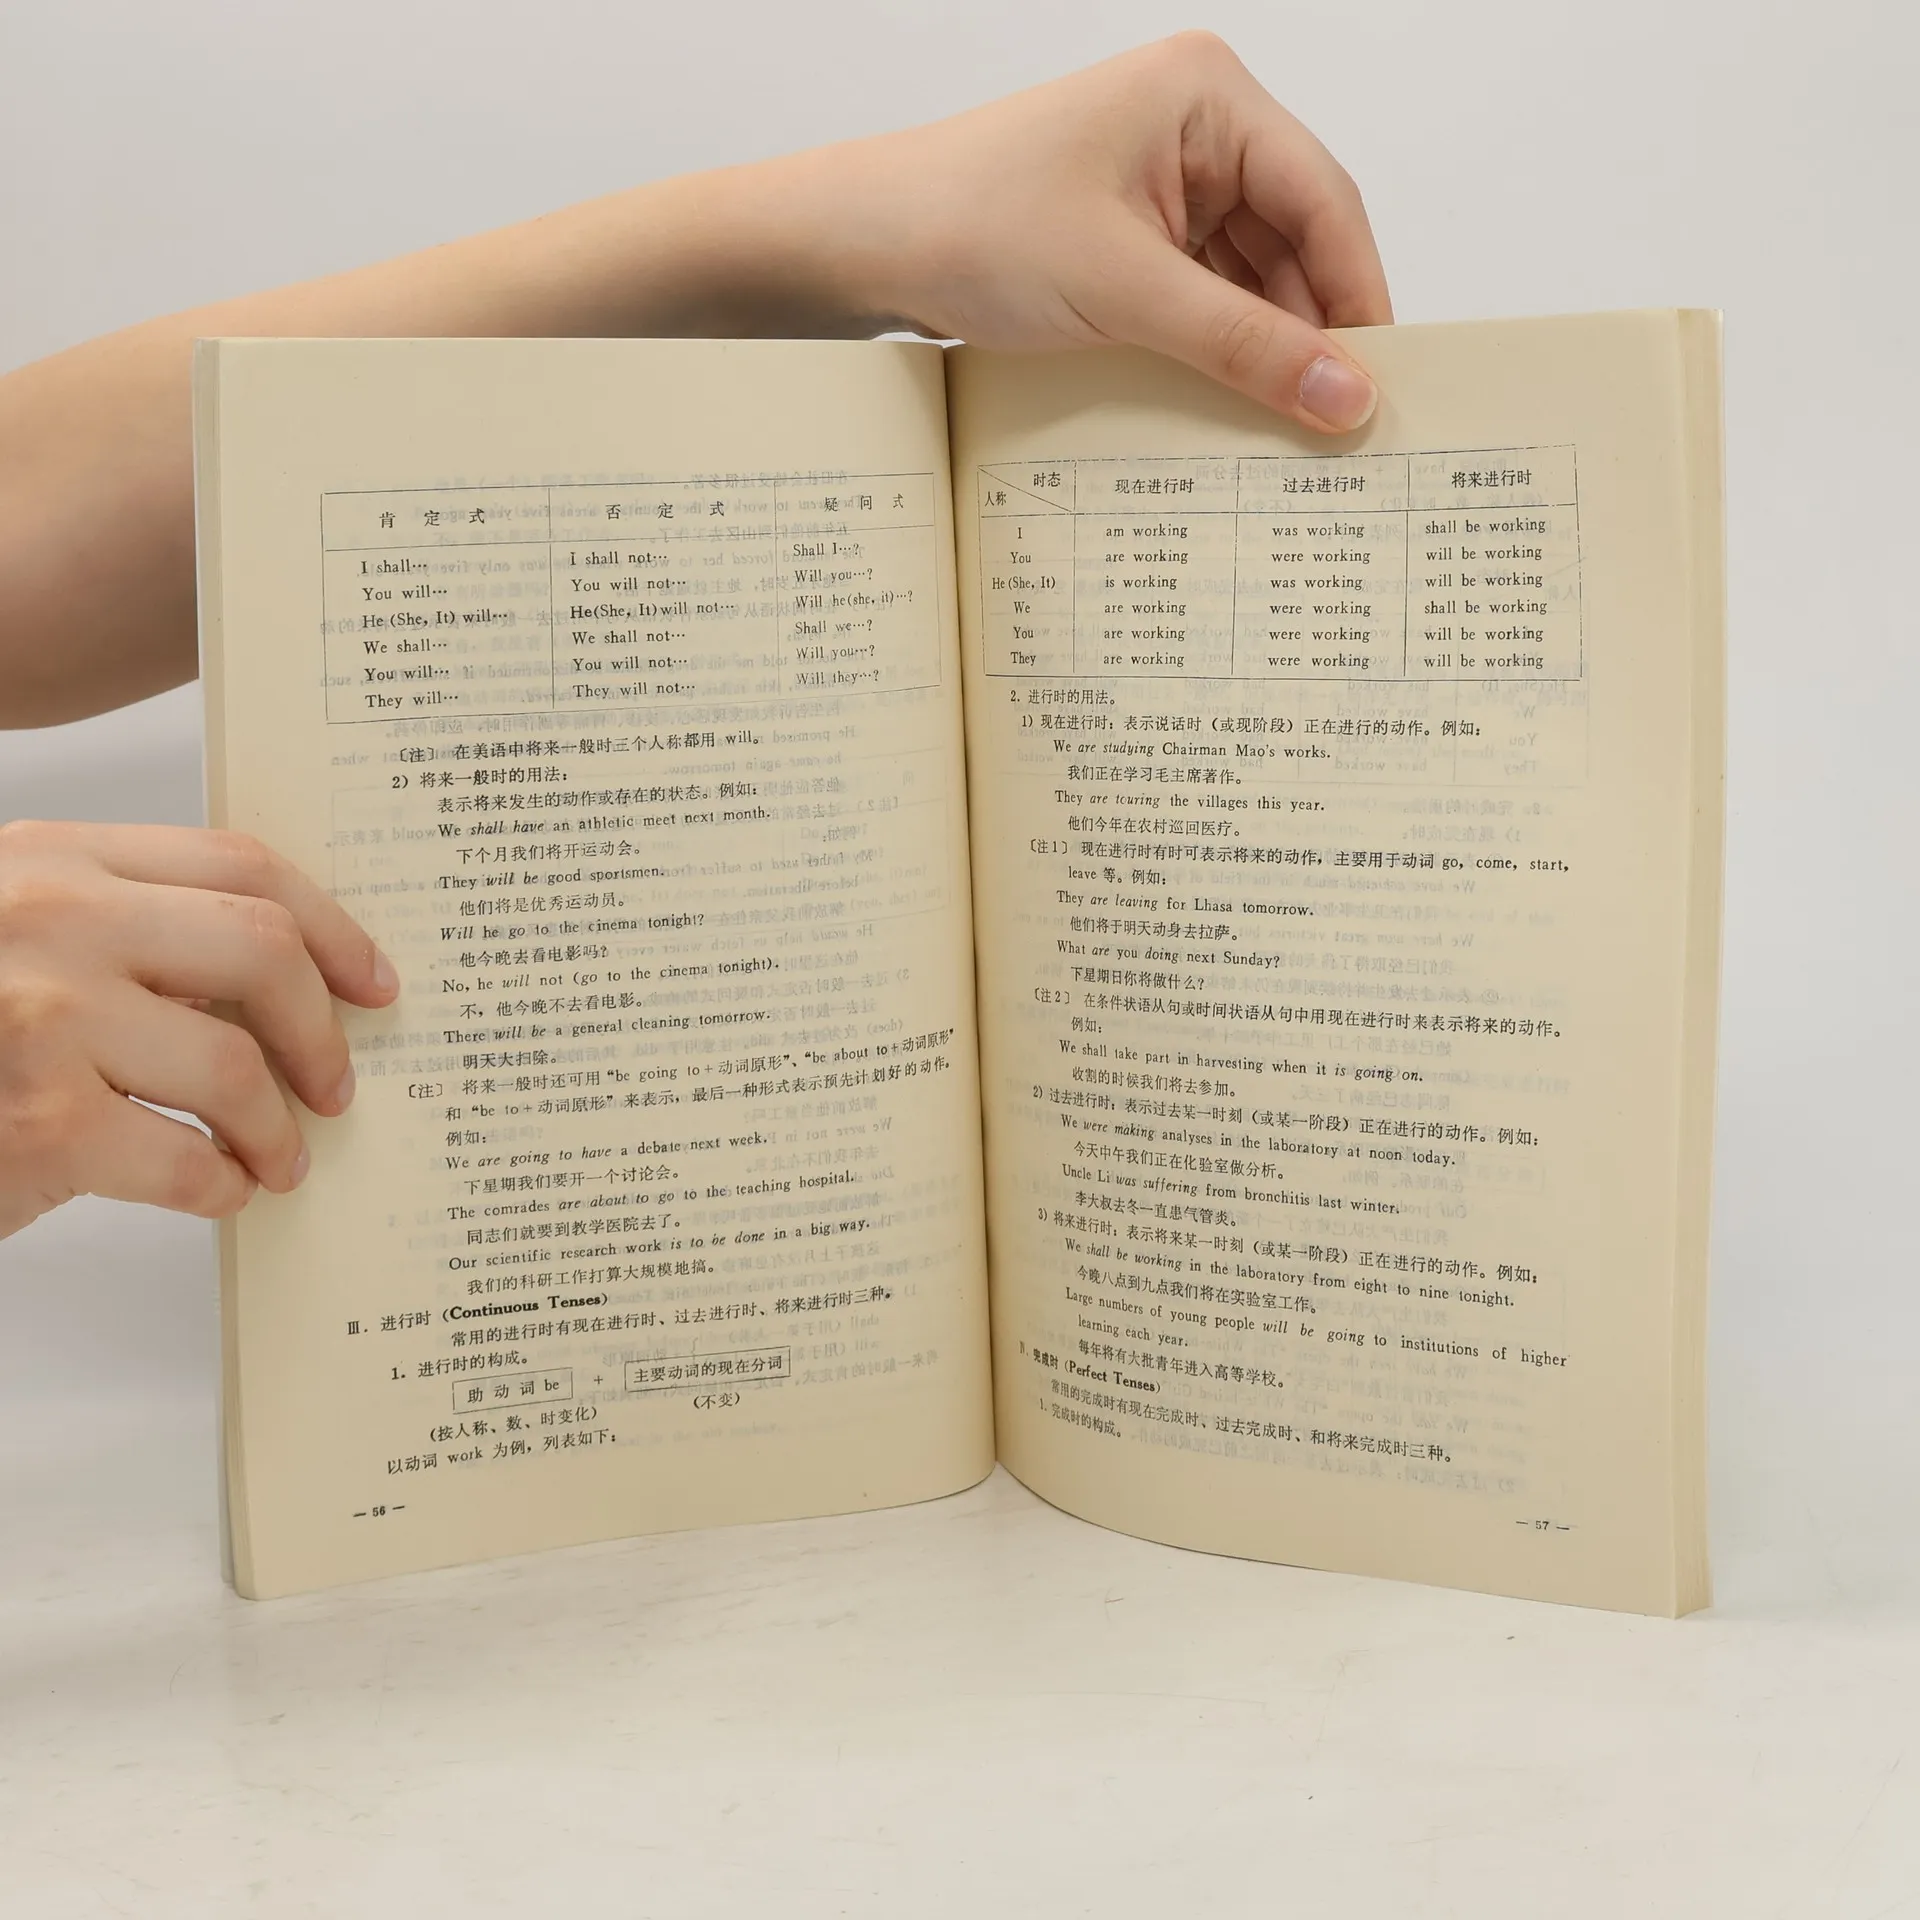 肯 定 式 否 定 式 疑 问 式
I shall… I shall not… Shall I…?
You will… You will not… Will you…?
He (She, It) will… He(She, It)will not… Will he(she, it)…?
We shall… We shall not… Shall we…?
You will… You will not… Will you…?
They will… They will not… Will they…?
〔注〕 在美语中将来一般时三个人称都用 will。
2) 将来一般时的用法：
表示将来发生的动作或存在的状态。例如：
We shall have an athletic meet next month.
下个月我们将开运动会。
They will be good sportsmen.
他们将是优秀运动员。
Will he go to the cinema tonight?
他今晚去看电影吗？
No, he will not (go to the cinema tonight).
不，他今晚不去看电影。
There will be a general cleaning tomorrow.
明天大扫除。
〔注〕 将来一般时还可用“be going to＋动词原形”、“be about to＋动词原形”
和“be to＋动词原形”来表示，最后一种形式表示预先计划好的动作。
例如：
We are going to have a debate next week.
下星期我们要开一个讨论会。
The comrades are about to go to the teaching hospital.
同志们就要到教学医院去了。
Our scientific research work is to be done in a big way.
我们的科研工作打算大规模地搞。
Ⅲ. 进行时 (Continuous Tenses)
常用的进行时有现在进行时、过去进行时、将来进行时三种。
1. 进行时的构成。
助 动 词 be + 主要动词的现在分词
(按人称、数、时变化) (不变)
以动词 work 为例，列表如下：
— 56 —
时态
人称 现在进行时 过去进行时 将来进行时
I am working was working shall be working
You are working were working will be working
He (She, It) is working was working will be working
We are working were working shall be working
You are working were working will be working
They are working were working will be working
2. 进行时的用法。
1) 现在进行时：表示说话时（或现阶段）正在进行的动作。例如：
We are studying Chairman Mao's works.
我们正在学习毛主席著作。
They are touring the villages this year.
他们今年在农村巡回医疗。
〔注1〕 现在进行时有时可表示将来的动作，主要用于动词 go, come, start,
leave 等。例如：
They are leaving for Lhasa tomorrow.
他们将于明天动身去拉萨。
What are you doing next Sunday?
下星期日你将做什么？
〔注2〕 在条件状语从句或时间状语从句中用现在进行时来表示将来的动作。
例如：
We shall take part in harvesting when it is going on.
收割的时候我们将去参加。
2) 过去进行时：表示过去某一时刻（或某一阶段）正在进行的动作。例如：
We were making analyses in the laboratory at noon today.
今天中午我们正在化验室做分析。
Uncle Li was suffering from bronchitis last winter.
李大叔去冬一直患气管炎。
3) 将来进行时：表示将来某一时刻（或某一阶段）正在进行的动作。例如：
We shall be working in the laboratory from eight to nine tonight.
今晚八点到九点我们将在实验室工作。
Large numbers of young people will be going to institutions of higher
learning each year.
每年将有大批青年进入高等学校。
Ⅳ. 完成时 (Perfect Tenses)
常用的完成时有现在完成时、过去完成时、和将来完成时三种。
1. 完成时的构成。
— 57 —